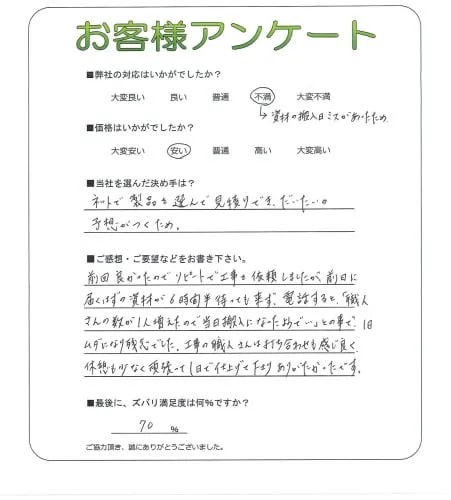 お客様アンケート
■弊社の対応はいかがでしたか?
大変良い 良い 普通 不満 大変不満
→資材の搬入日ミスがあったため
■価格はいかがでしたか?
大変安い 安い 普通 高い 大変高い
■当社を選んだ決め手は?
ネットで製品を選んで見積りでき、だいたいの
予想がつくため。
■ご感想・ご要望などをお書き下さい。
前回良かったのでリピートで工事を依頼しましたが、前日に
届くはずの資材が6時間半待っても来ず、電話すると、「職人
さんの数が1人増えたので当日搬入になったみたい」との事で、1日
ムダになり残念でした。工事の職人さんは打ち合わせも感じ良く
休憩も少なく頑張って1日で仕上げて下さりありがたかったです。
■最後に、ズバリ満足度は何%ですか?
70 %
ご協力頂き、誠にありがとうございました。